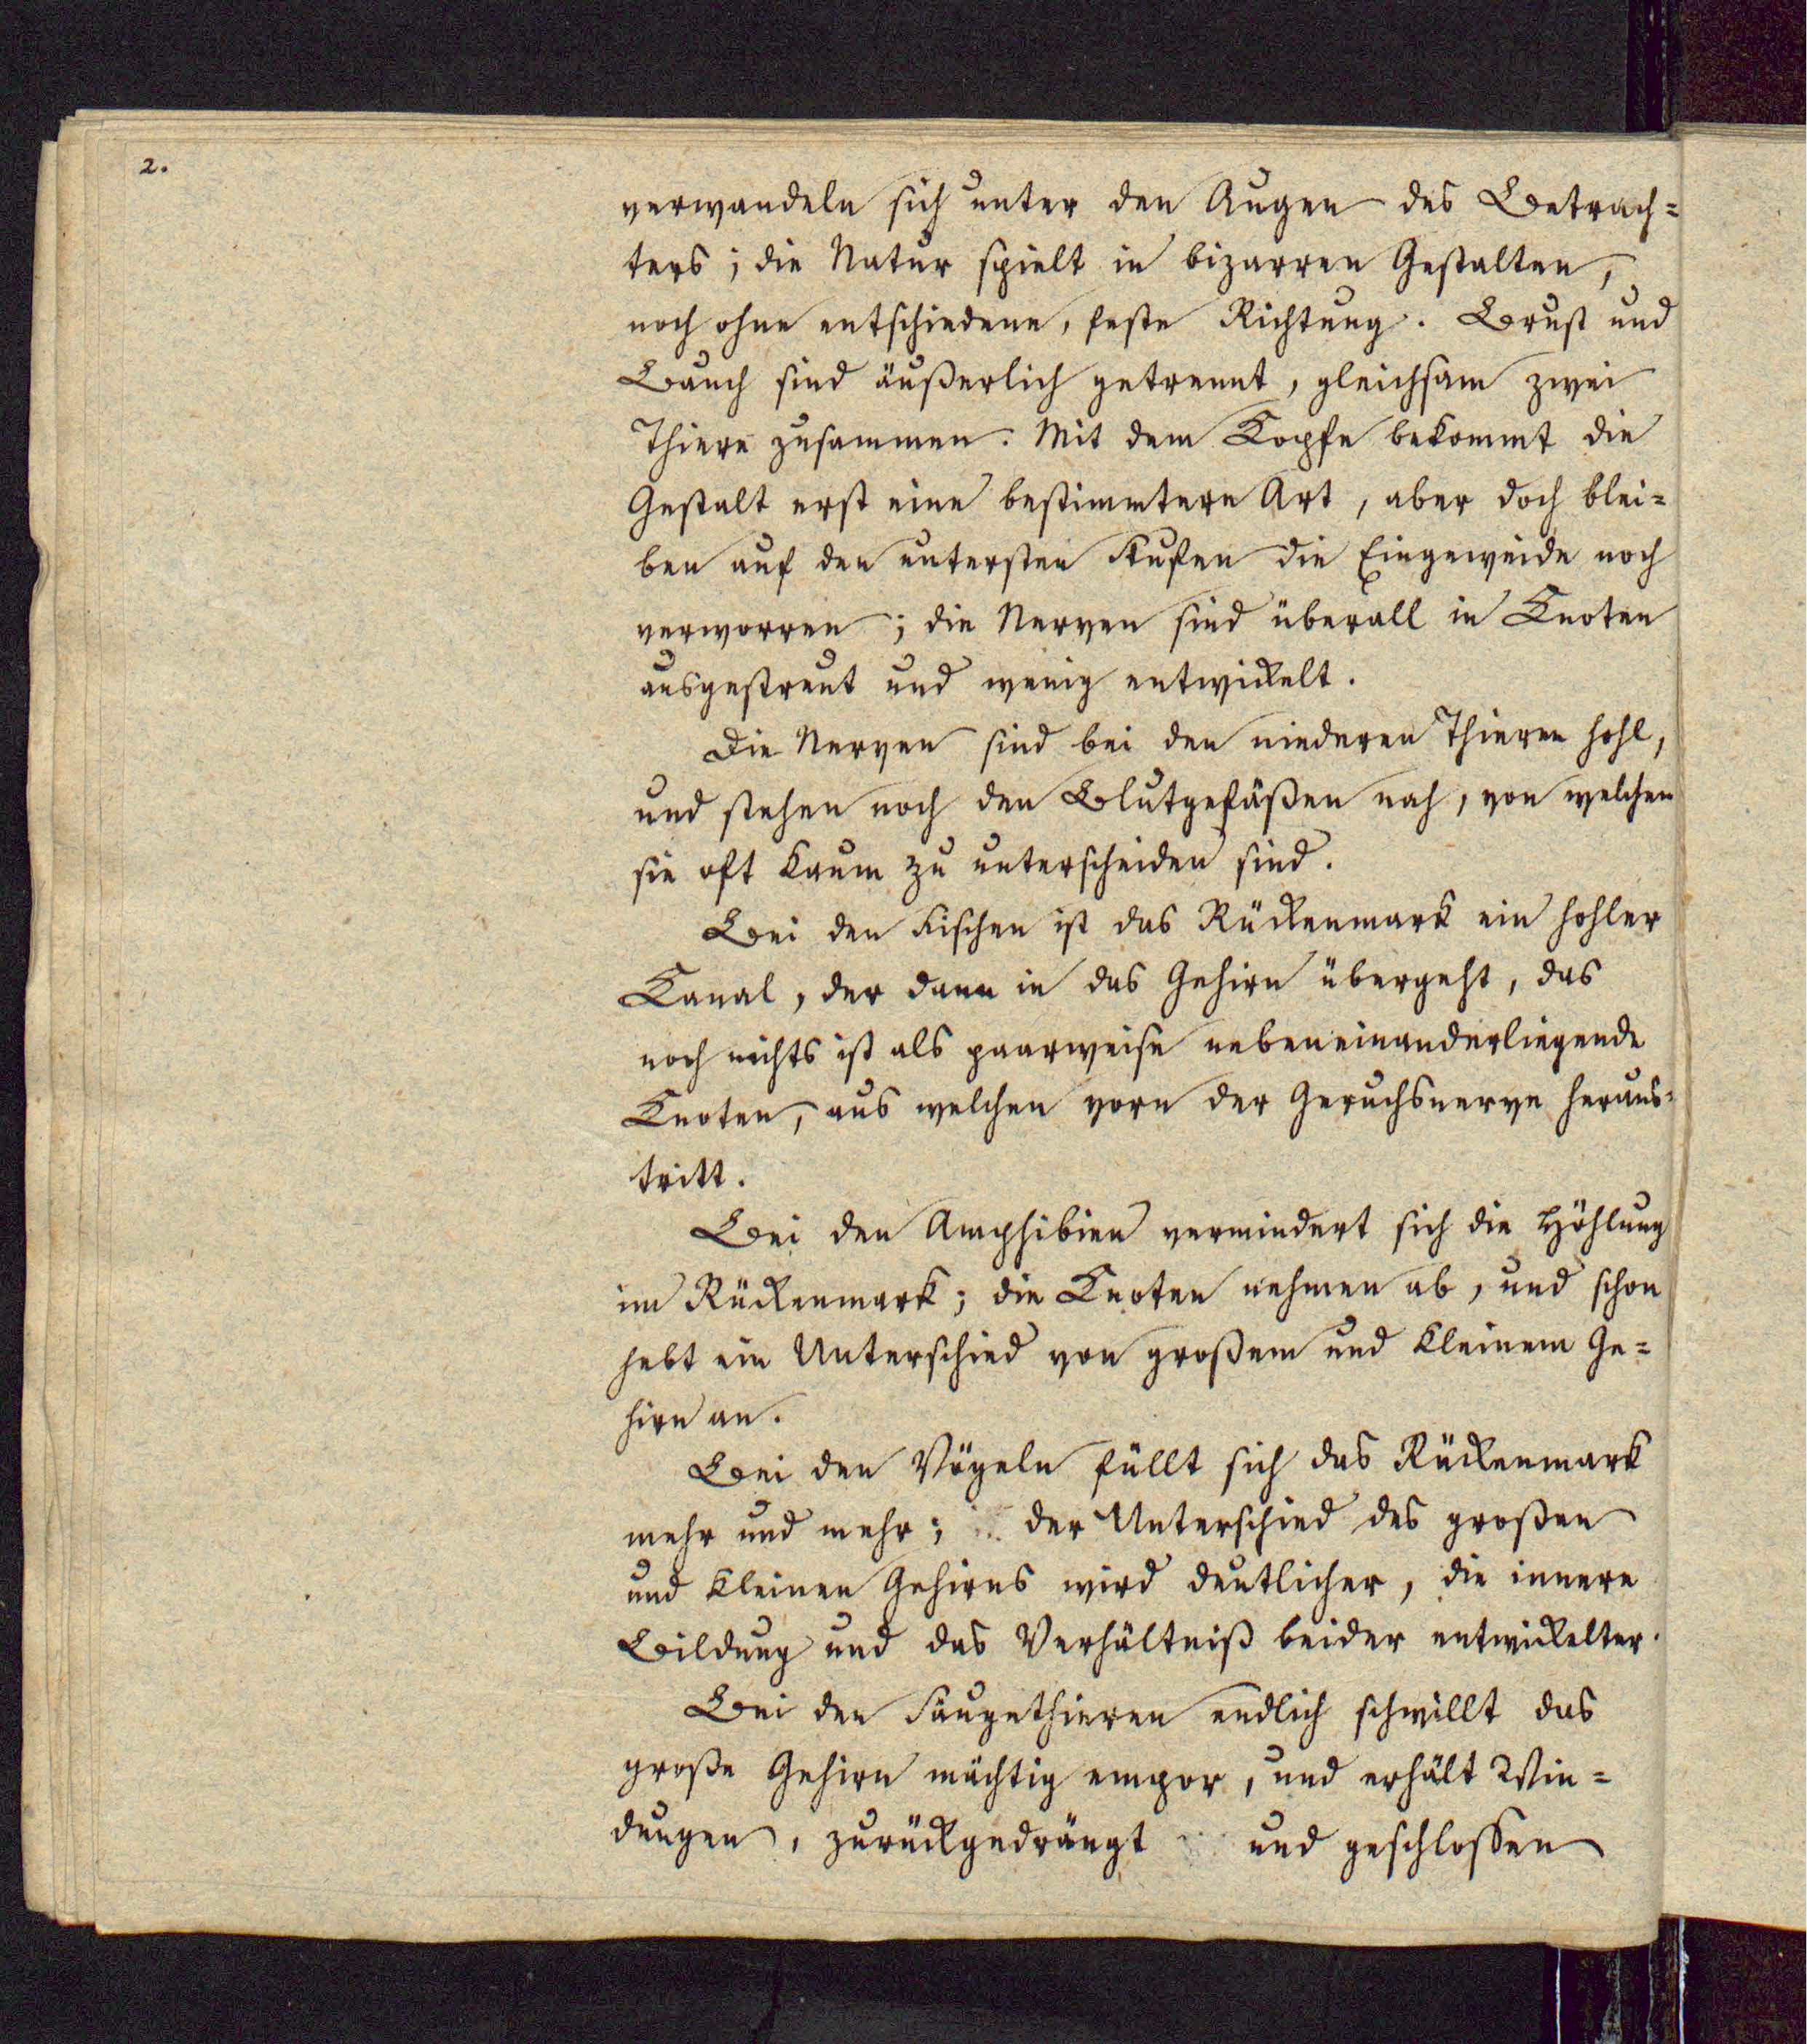 2.
verwandeln sich unter den Augen des Betrach=
ters; die Natur spielt in bizarren Gestalten,
noch ohne entschiedene, feste Richtung. Brust und
Bauch sind äußerlich getrennt, gleichsam zwei
Thiere zusammen. Mit dem Kopfe bekommt die
Gestalt erst eine bestimmtere Art, aber doch blei=
ben auf den untersten Stufen die Eingeweide noch
verworren; die Nerven sind überall in Knoten
ausgestreut und wenig entwickelt.
Die Nerven sind bei den niederen Thieren hohl,
und stehen noch den Blutgefäßen nah, von welchen
sie oft kaum zu unterscheiden sind.
Bei den Fischen ist das Rückenmark ein hohler
Kanal, der dann in das Gehirn übergeht, das
noch nichts ist als paarweise nebeneinanderliegende
Knoten, aus welchen vorn der Geruchsnerve heraus=
tritt.
Bei den Amphibien vermindert sich die Höhlung
im Rückenmark; die Knoten nehmen ab, und schon
hebt ein Unterschied von großem und kleinem Ge=
hirn an.
Bei den Vögeln füllt sich das Rückenmark
mehr und mehr; der Unterschied des großen
und kleinen Gehirns wird deutlicher, die innere
Bildung und das Verhältniß beider entwickelter.
Bei den Säugethieren endlich schwillt das
große Gehirn mächtig empor, und erhält Win=
dungen, zurückgedrängt und geschlossen